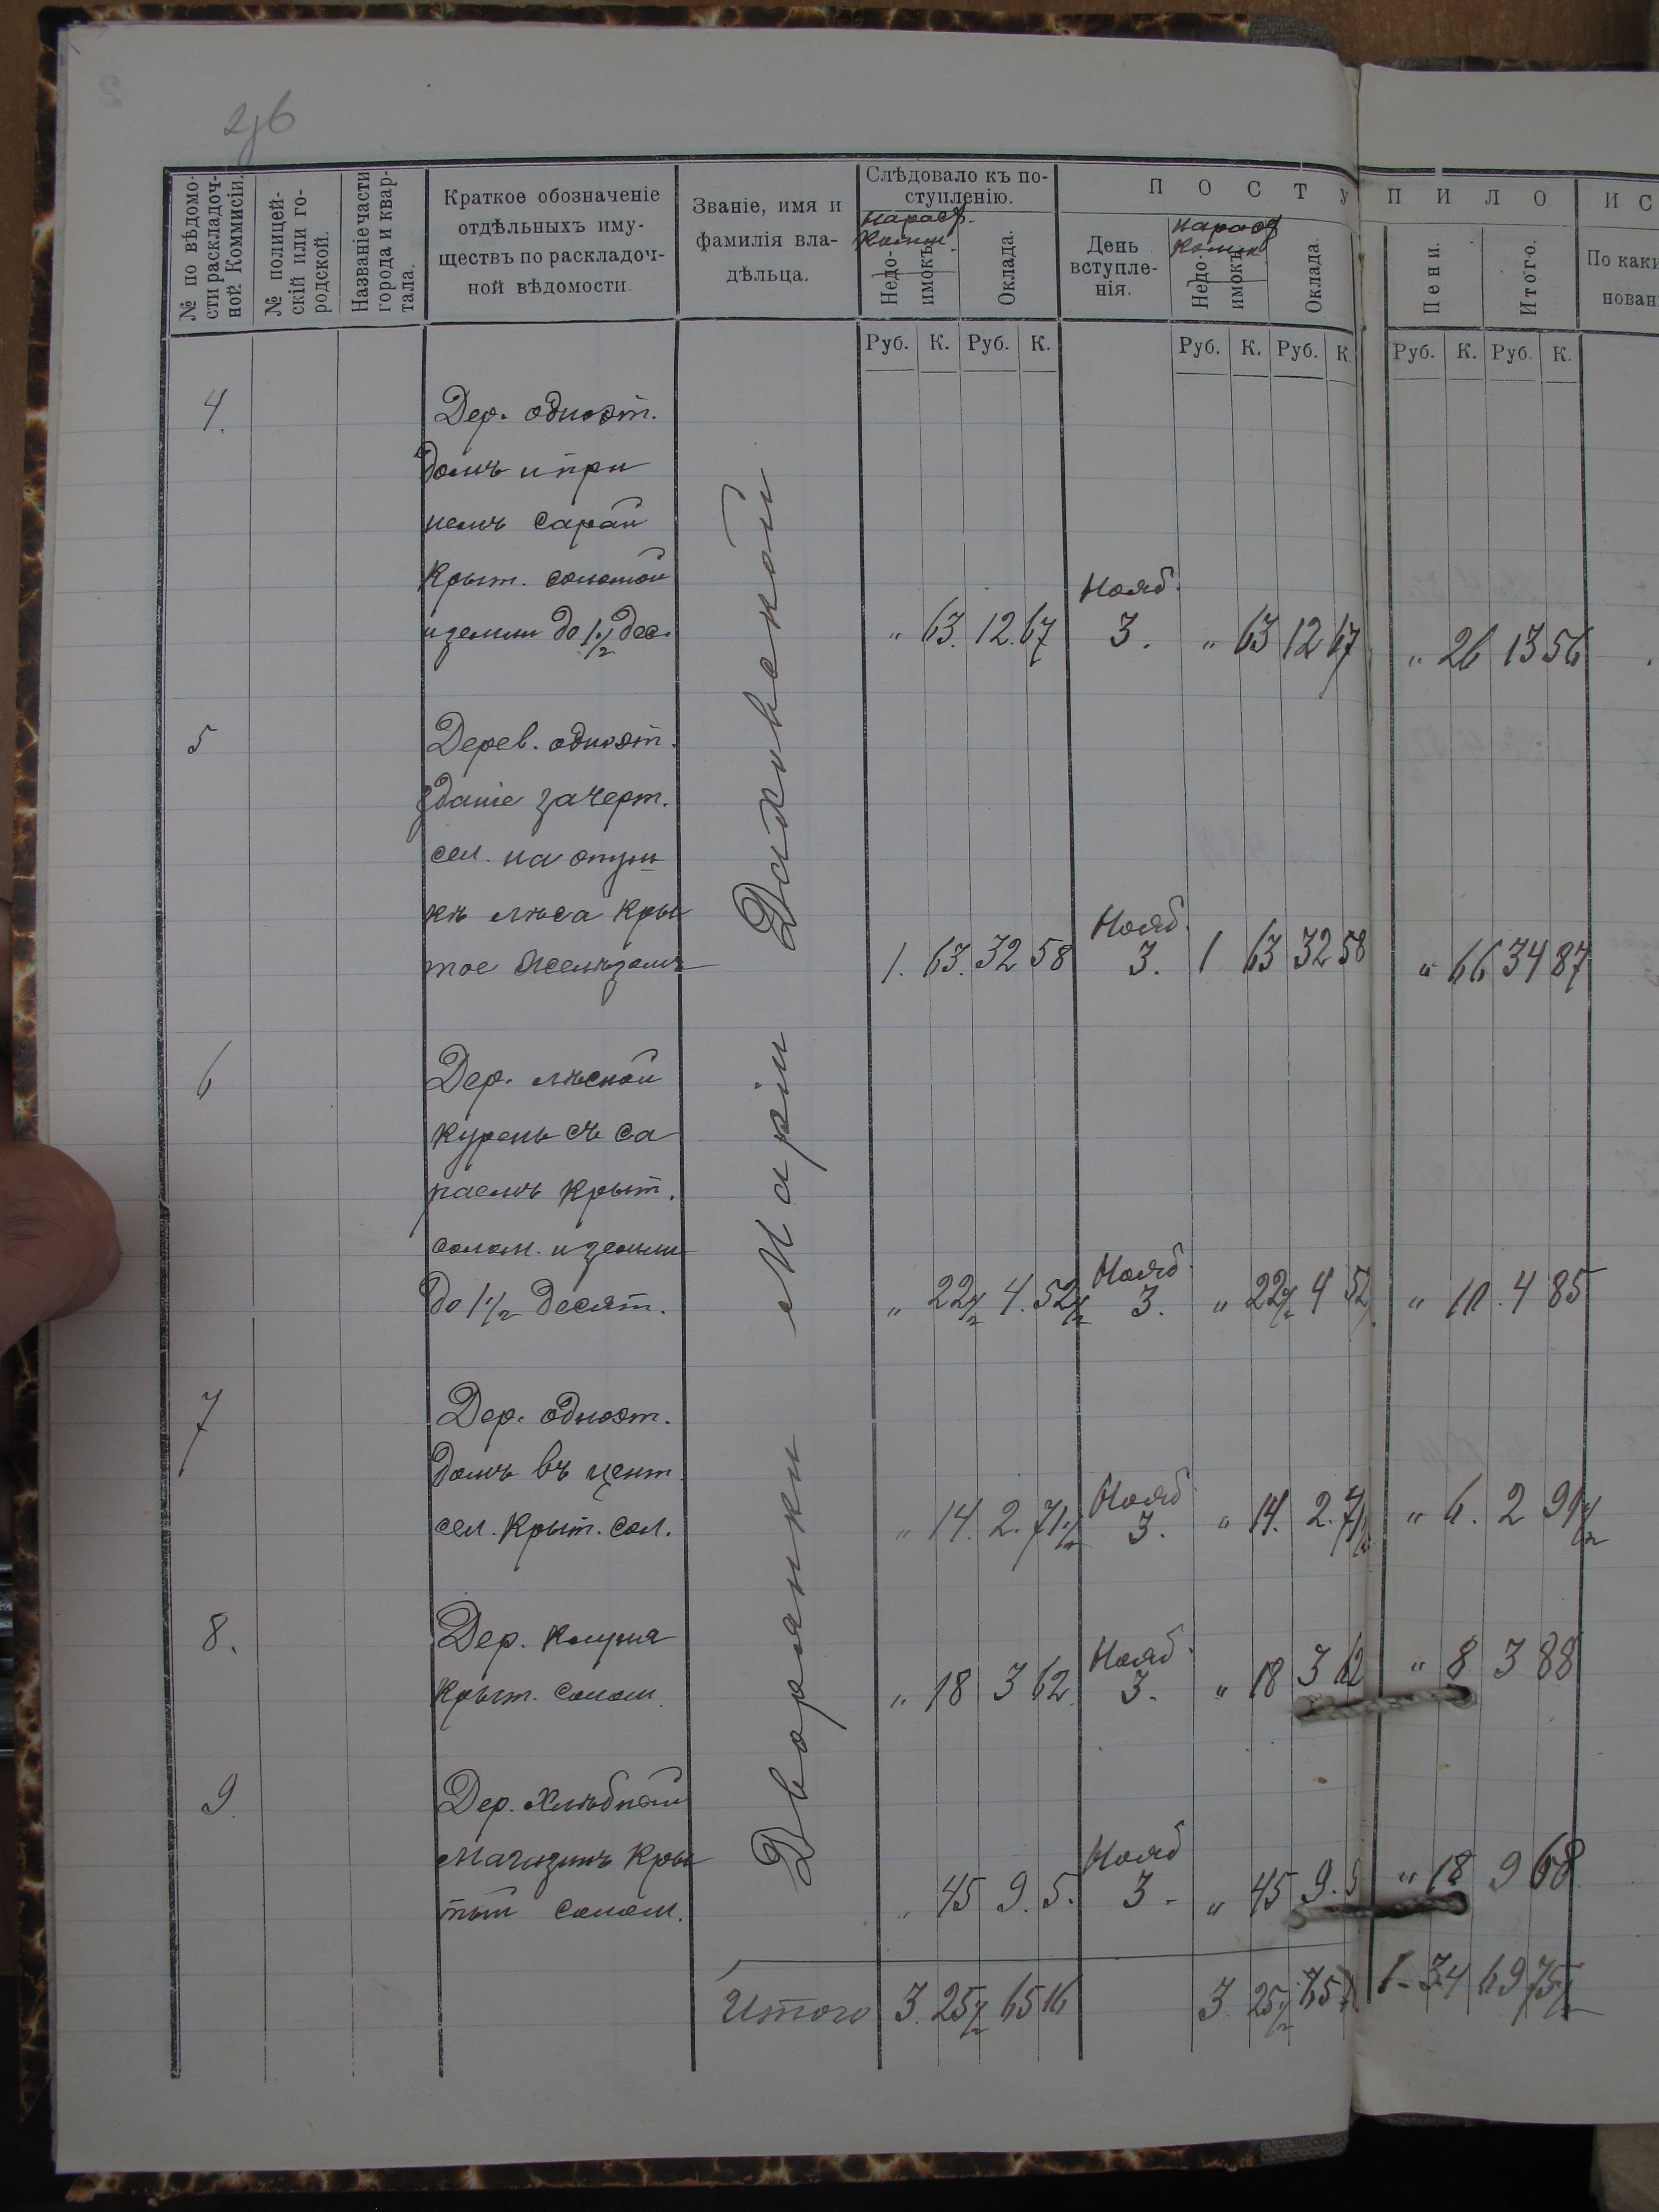 № по вѣдомо-
сти раскладоч-
ной Коммисіи.
№ полицей-
скій или го-
родской.
Названіе части
города и квар-
тала.
Краткое обозначеніе
отдѣльныхъ иму-
ществъ по раскладоч-
ной вѣдомости.
Званіе, имя и
фамилія вла-
дѣльца.
Слѣдовало къ по-
ступленію.
Недо-
имокъ
Оклада.
П О С Т У П И Л О
День
вступле-
нія.
Недо-
имокъ
Оклада.
Пени.
Итого.
И С
По каки
нован
Руб. К. Руб. К. Руб. К. Руб. К. Руб. К. Руб. К.
Дворянки Маріи Даховской
4. Дер. одноэт.
домъ и при
немъ сарай
крыт. соломой
и земли до 1 1/2 дес. " 63. 12. 67 Нояб. 3. " 63 12 67 " 26 13 56
5 Дерев. одноэт.
зданіе за черт.
сел. на опуш-
кѣ лѣса кры
тое желѣзомъ 1. 63. 32 58 Нояб. 3. 1 63 32 58 " 66 34 87
6 Дер. лѣсной
курень съ са
раемъ крыт.
солом. и земли
до 1 1/2 десят. " 22 1/2 4. 52 1/2 Нояб. 3. " 22 1/2 4 52 " 10. 4 85
7 Дер. одноэт.
домъ въ цент.
сел. крыт. сол. " 14. 2. 71 1/2 Нояб. 3. " 14. 2. 71 1/2 " 6. 2 91 1/2
8. Дер. клуня
крыт. солом. " 18 3 62 Нояб. 3. " 18 3 62 " 8 3 88
9 Дер. Хлѣбный
магазинъ кры
тый солом. " 45 9. 5. Нояб 3 - " 45 9. 5 " 18 9 68
Итого 3. 25 1/2 65 16 3. 25 1/2 65 1 - 34 69 75 1/2